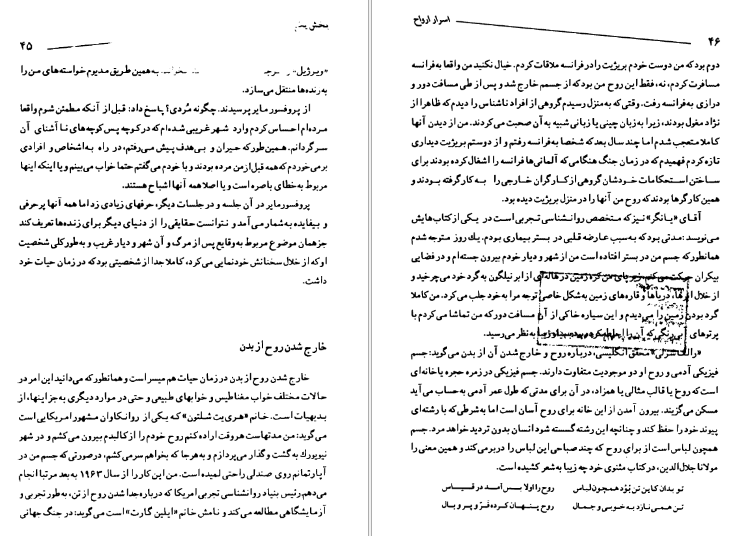 بخش یکم
۴۵
«ویرژیل» به همین طریق مدیوم خواسته‌های من را
به رنده‌ها منتقل می‌سازد.
از پروفسور مایر پرسیدند. چگونه مُردی؟ پاسخ داد: قبل از آنکه مطمئن شوم واقعا
مرده‌ام احساس کردم وارد شهر غریبی شده‌ام که در کوچه پس کوچه‌های ناآشنای آن
سرگردانم. همین‌طور که حیران و بی‌هدف پیش می‌رفتم، در راه به اشخاص و افرادی
برمی‌خوردم که همه قبل از من مرده بودند و با خودم می‌گفتم حتما خواب می‌بینم و یا اینکه اینها
مربوط به خطای باصره است و یا اصلا همه آنها اشباح هستند.
پروفسور مایر در آن جلسه و در جلسات دیگر، حرفهای زیادی زد اما همه آنها پرحرفی
و بیفایده به شمار می‌آمد و نتوانست حقایقی را از دنیای دیگر برای زنده‌ها تعریف کند
جز همان موضوع مربوط به وقایع پس از مرگ و آن شهر و دیار غریب و به‌طور کلی شخصیت
او که از خلال سخنانش خودنمایی می‌کرد، کاملا جدا از شخصیتی بود که در زمان حیات خود
داشت.
خارج شدن روح از بدن
خارج شدن روح از بدن در زمان حیات هم میسر است و همانطور که می‌دانید این امر در
حالات مختلف خواب مغناطیس و خوابهای طبیعی و حتی در موارد دیگری به جز اینها، از
بدیهیات است. خانم «هریت شلتون» که یکی از روانکاوان مشهور امریکایی است
می‌گوید: من مدتهاست هروقت اراده کنم روح خودم را از کالبدم بیرون می‌کشم و در شهر
نیویورک به گشت و گذار می‌پردازم و به هرجا که بخواهم سرمی کشم، درصورتی که جسم من در
آپارتمانم روی صندلی راحتی لمیده است. من این کار را از سال ۱۹۶۳ به بعد مرتبا انجام
می‌دهم رئیس بنیاد روانشناسی تجربی امریکا که درباره جدا شدن روح از تن، به طور تجربی و
آزمایشگاهی مطالعه می‌کند و نامش خانم «ایلین گارت» است می‌گوید: در جنگ جهانی
اسرار ارواح
۴۶
دوم بود که من دوست خودم بریژیت را در فرانسه ملاقات کردم. خیال نکنید من واقعا به فرانسه
مسافرت کردم، نه، فقط این روح من بود که از جسمم خارج شد و پس از طی مسافت دور و
درازی به فرانسه رفت. وقتی که به منزل رسیدم گروهی از افراد ناشناس را دیدم که ظاهرا از
نژاد مغول بودند، زیرا به زبان چینی یا زبانی شبیه به آن صحبت می‌کردند. من از دیدن آنها
کاملا متعجب شدم اما چند سال بعد که شخصا به فرانسه رفتم و از دوستم بریژیت دیداری
تازه کردم فهمیدم که در زمان جنگ هنگامی که آلمانی‌ها فرانسه را اشغال کرده بودند برای
ساختن استحکامات خودشان گروهی از کارگران خارجی را به کار گرفته بودند و
همین کارگرها بودند که روح من آنها را در منزل بریژیت دیده بود.
آقای «یانگر» نیز که متخصص روانشناسی تجربی است در یکی از کتاب‌هایش
می‌نویسد: مدتی بود که به سبب عارضه قلبی در بستر بیماری بودم. یک روز متوجه شدم
همانطور که جسم من در بستر افتاده است من از شهر و دیار خودم بیرون جسته‌ام و در فضایی
بیکران حرکت می‌کنم زیر پای من کره زمین در هاله‌ای از ابر نیلگون به گرد خود می‌چرخید و
از خلال ابرها، دریاها و قاره‌های زمین به شکل خاصی توجه مرا به خود جلب می‌کرد. من کاملا
گرد بودن زمین را می‌دیدم و این سیاره خاکی از آن مسافت دور که من تماشا می‌کردم با
پرتوهای رنگی که آن را به نظر می‌رسید.
محقق انگلیسی، درباره روح و خارج شدن آن از بدن می‌گوید: جسم
فیزیکی آدمی و روح او دو موجودیت متفاوت دارند. جسم فیزیکی در زمره حجره یا خانه‌ای
است که روح یا قالب مثالی یا همزاد، در آن برای مدتی که طول عمر آدمی به حساب می‌آید
مسکن می‌گزیند. بیرون آمدن از این خانه برای روح آسان است اما به شرطی که با رشته‌ای
پیوند خود را حفظ کند و چنانچه این رشته گسسته شود انسان بدون تردید خواهد مرد. جسم
همچون لباس است از برای روح که چند صباحی این لباس را دربرمی‌کند و همین معنی را
مولانا جلال‌الدین، در کتاب مثنوی خود چه زیبا به شعر کشیده است.
تو بدان کاین تن بُوَد همچون لباس روح را اولا بس آمد در قیاس
تن همی نازد به خوبی و جمال روح پنهان کرده فرّ و پر و بال